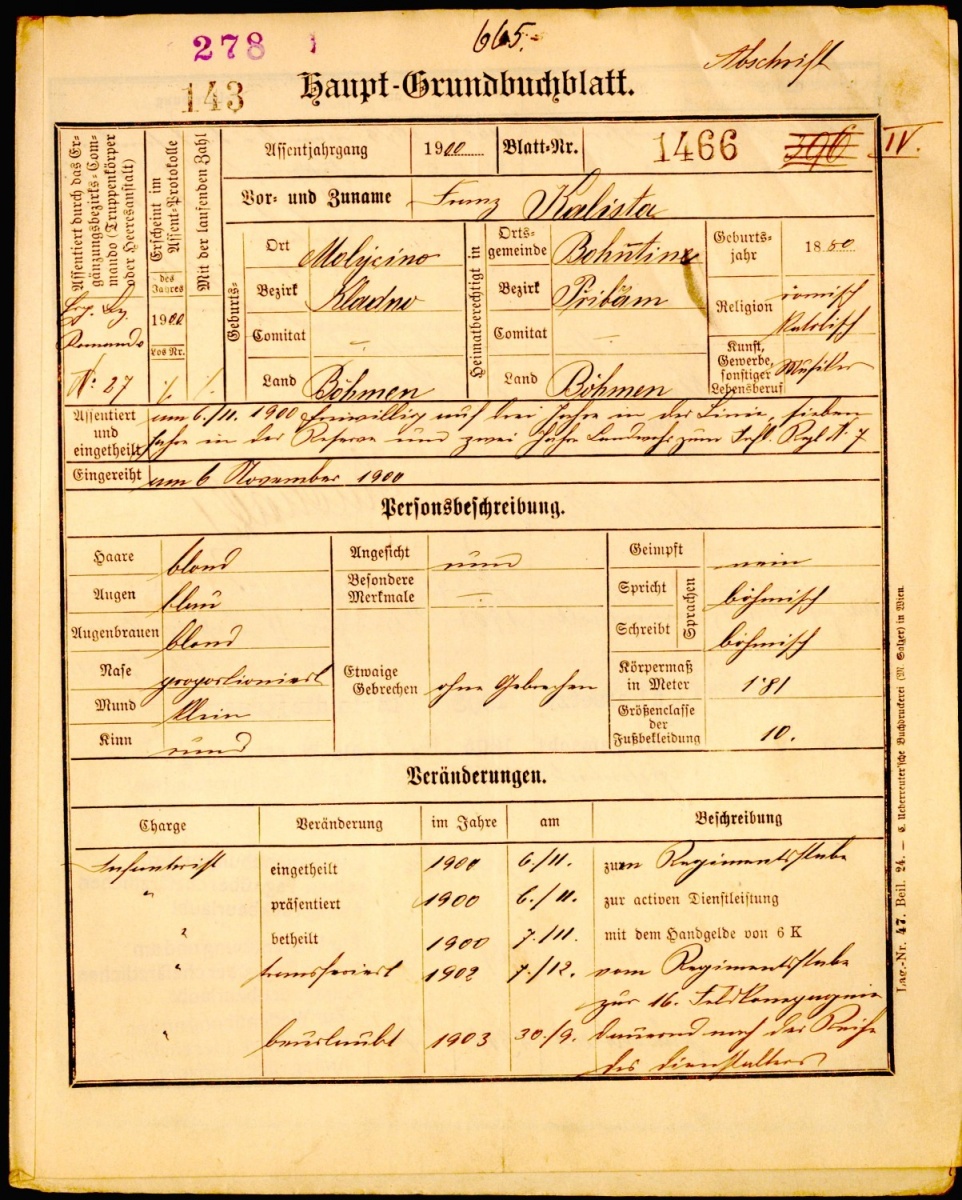 278
665.
Abschrift
143
Haupt-Grundbuchblatt.
Assentiert durch das Er-
gänzungsbezirks-Com-
mando (Truppenkörper
oder Heeresanstalt)
Erg. Bz.
Komando
Nº 27
Erscheint im
Assent-Protokolle
des
Jahres
1900
Los Nr.
Mit der laufenden Zahl
Assentjahrgang 1900 Blatt-Nr. 1466 IV.
Vor- und Zuname Franz Kalista
Geburts-
Ort
Bezirk Kladno
Comitat –
Land Böhmen
Heimatberechtigt in
Orts-
gemeinde Bohutin
Bezirk Přibram
Comitat –
Land Böhmen
Geburts-
jahr 1880
Religion römisch
katolisch
Kunst,
Gewerbe,
sonstiger
Lebensberuf Musiker
Assentiert
und
eingetheilt
am 6./11. 1900 freiwillig auf drei Jahre in der Linie, sieben
Jahre in der Reserve und zwei Jahre Landwehr zum Inft. Regt Nº 7
Eingereiht am 6 November 1900
Personsbeschreibung.
Haare blond
Augen blau
Augenbrauen blond
Nase proportioniert
Mund klein
Kinn rund
Angesicht rund
Besondere
Merkmale –
Etwaige
Gebrechen ohne Gebrechen
Geimpft nein
Sprachen
Spricht böhmisch
Schreibt böhmisch
Körpermaß
in Meter 1·81
Größenclasse
der
Fußbekleidung 10.
Veränderungen.
Charge Veränderung im Jahre am Beschreibung
Infanterist eingetheilt 1900 6./11. zum Regimentsstabe
" präsentiert 1900 6./11. zur activen Dienstleistung
" betheilt 1900 7./11. mit dem Handgelde von 6 K
" transferiert 1902 7./12. vom Regimentsstabe
zur 16. Feldkompagnie
" beurlaubt 1903 30./9. dauernd nach der Reihe
des Dienstalters
Lag.-Nr. 47. Beil. 24. — C. Ueberreuter'sche Buchdruckerei (M. Salzer) in Wien.